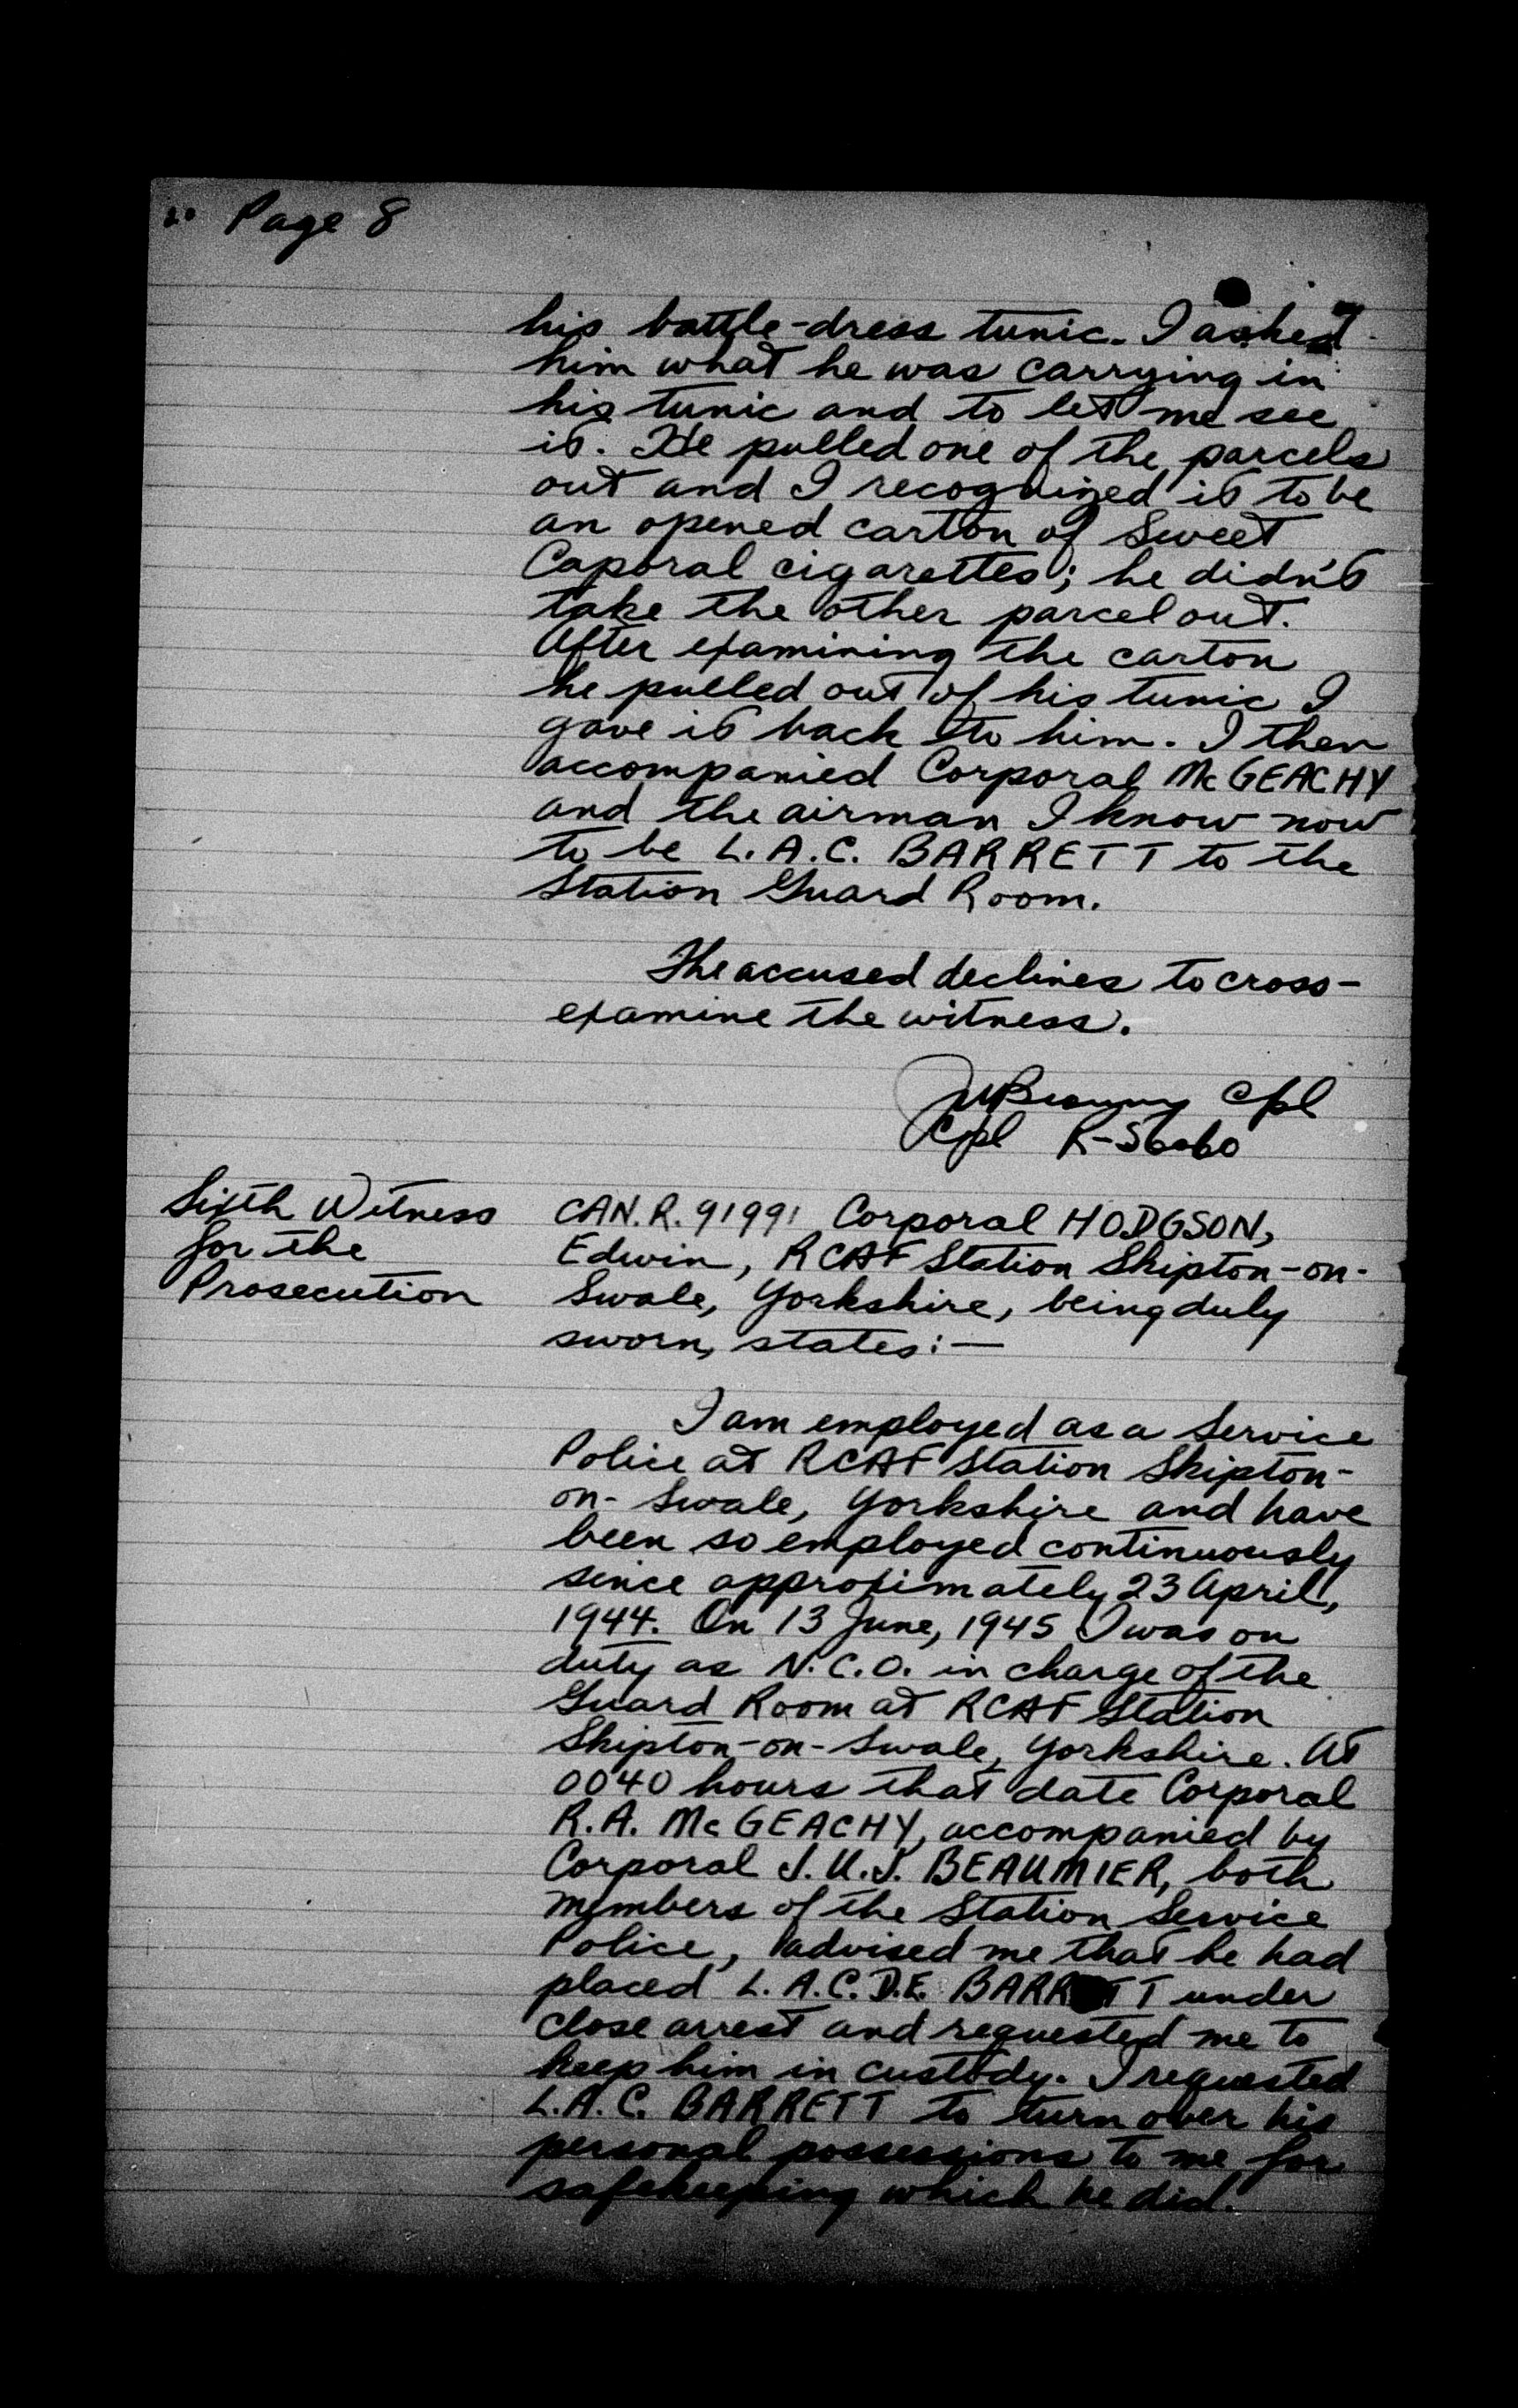 Page 8
his battle-dress tunic. I asked
him what he was carrying in
his tunic and to let me see
it. He pulled one of the parcels
out and I recognized it to be
an opened carton of Sweet
Caporal cigarettes; he didn't
take the other parcel out.
After examining the carton
he pulled out of his tunic I
gave it back to him. I then
accompanied Corporal McGEACHY
and the airman I know now
to be L.A.C. BARRETT to the
Station Guard Room.
The accused declines to cross-
examine the witness.
Cpl
Cpl
Sixth Witness
for the
Prosecution
CAN.R. 91991 Corporal HODGSON,
Edwin, RCAF Station Skipton-on-
Swale, Yorkshire, being duly
sworn, states:—
I am employed as a Service
Police at RCAF Station Skipton-
on-Swale, Yorkshire and have
been so employed continuously
since approximately 23 April,
1944. On 13 June, 1945 I was on
duty as N.C.O. in charge of the
Guard Room at RCAF Station
Skipton-on-Swale, Yorkshire. At
0040 hours that date Corporal
R.A. McGEACHY, accompanied by
Corporal J.U.J. BEAUMIER, both
members of the Station Service
Police, advised me that he had
placed L.A.C. D.E. BARRETT under
close arrest and requested me to
keep him in custody. I requested
L.A.C. BARRETT to turn over his
personal possessions to me for
safekeeping which he did.